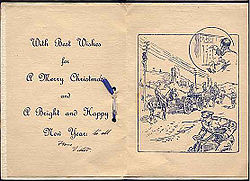 With Best Wishes
for
A Merry Christmas
and
A Bright and Happy
New Year. to all
from